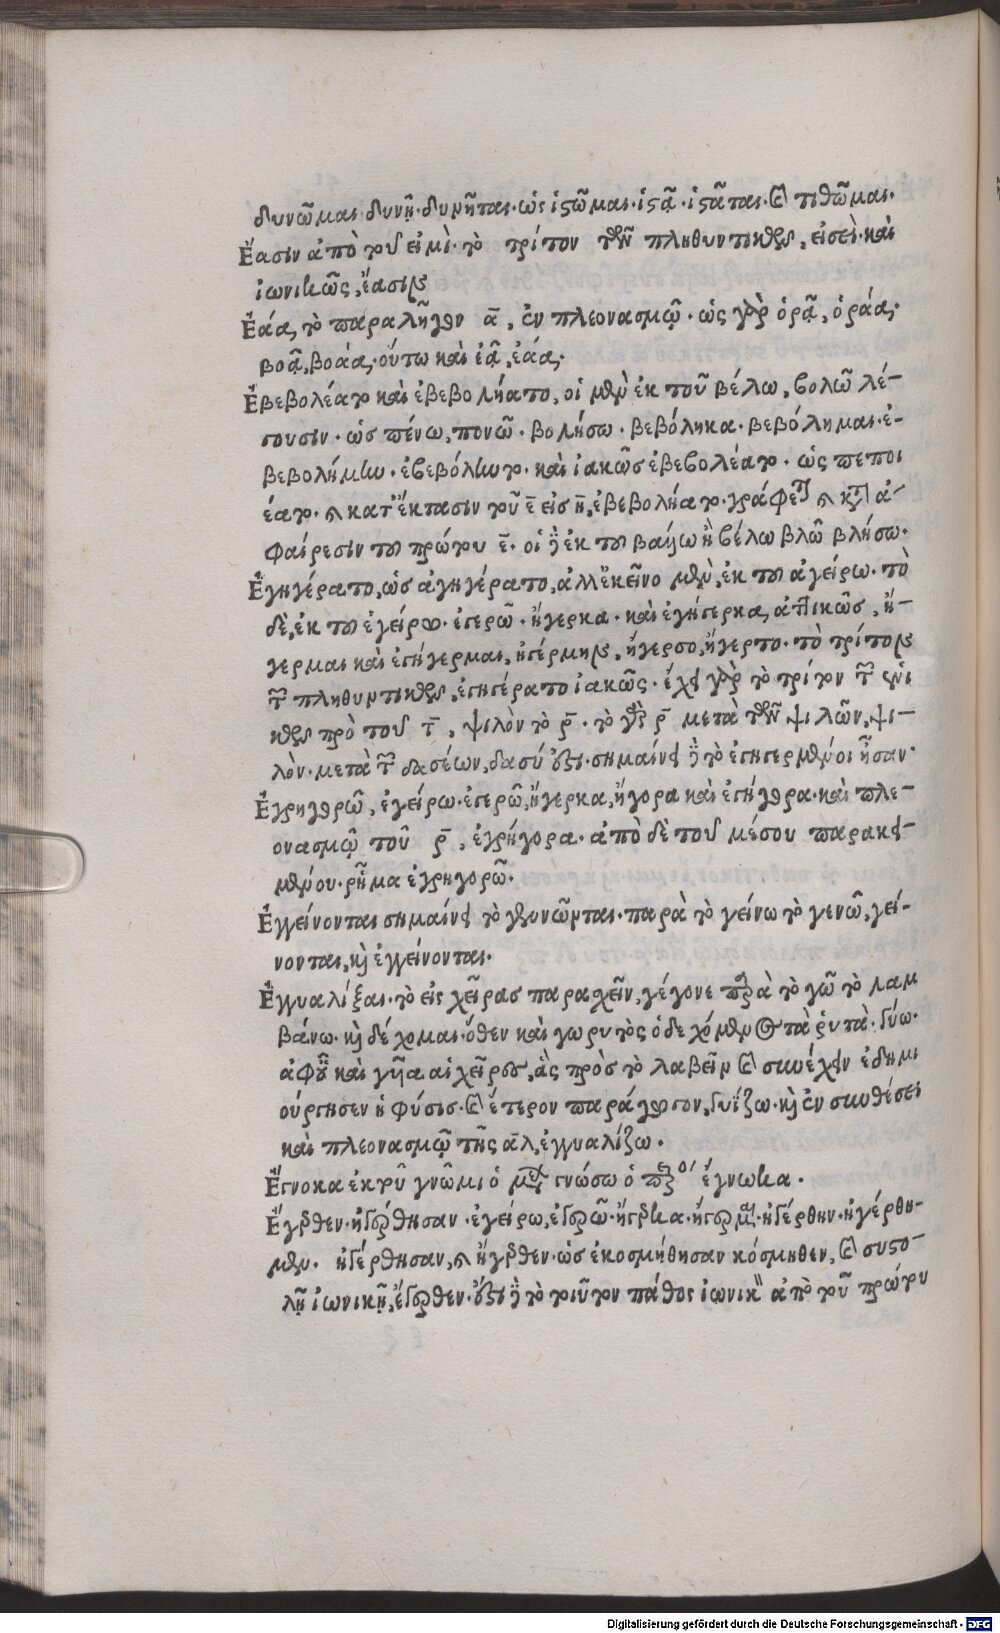 δυνῶμαι δυνῇ· δυνῆται· ὡς ἱςῶμαι· ἱςᾷ· ἱςᾶται· καὶ τιθῶμαι·
Ἔασιν ἀπὸ τοῦ εἰμὶ· τὸ τρίτον τῶν πληθυντικῶν, εἰσεὶ· καὶ
ἰωνικῶς, ἔασιν
Ἐάα, τὸ παραλῆγον ᾱ, ἐν πλεονασμῷ· ὡς γὰρ ὁρᾷ, ὁράα·
βοᾷ, βοάα· οὕτω καὶ ἐᾷ, ἐάα·
Ἐβεβολέατο καὶ ἐβεβολήατο, οἱ μὲν ἐκ τοῦ βέλω, βολῶ λέ-
γουσιν· ὡς πένω, πονῶ· βολήσω· βεβόληκα· βεβόλημαι· ἐ-
βεβολήμην· ἐβεβόλητο· καὶ ἰακῶς ἐβεβολέατο· ὡς πεποι
έατο· καὶ κατ' ἔκτασιν τοῦ ε̄ εἰς η̄, ἐβεβολήατο· γράφεται καὶ κατὰ ἀ-
φαίρεσιν τοῦ πρώτου ε̄· οἱ δὲ ἐκ τοῦ βάλλω ἢ βέλω βλῶ βλήσω·
Ἐγηγέρατο, ὡς ἀγηγέρατο, ἀλλ' ἐκεῖνο μὲν, ἐκ τοῦ ἀγείρω· τὸ
δὲ, ἐκ τοῦ ἐγείρω· ἐγερῶ· ἤγερκα· καὶ ἐγήγερκα, ἀττικῶς, ἤ-
γερμαι καὶ ἐγήγερμαι, ἠγέρμην, ἤγερσο, ἤγερτο· τὸ τρίτον
τῶν πληθυντικῶν, ἐγηγέρατο ἰακῶς· ἔχει γὰρ τὸ τρίτον τῶν ἑνι
κῶν πρὸ τοῦ τ̄, ψιλὸν τὸ ρ̄· τὸ γὰρ ρ̄ μετὰ τῶν ψιλῶν, ψι-
λὸν· μετὰ τῶν δασέων, δασύ ἐςι· σημαίνει δὲ τὸ ἐγηγερμένοι ἦσαν·
Ἐγρηγορῶ, ἐγείρω· ἐγερῶ, ἤγερκα, ἤγορα καὶ ἐγήγορα· καὶ πλε-
ονασμῷ τοῦ ρ̄, ἐγρήγορα· ἀπὸ δὲ τοῦ μέσου παρακει-
μένου· ῥῆμα ἐγρηγορῶ·
Ἐγγείνονται σημαίνει τὸ γεννῶνται· παρὰ τὸ γείνω τὸ γενῶ, γεί-
νονται, καὶ ἐγγείνονται·
Ἐγγυαλίξαι· τὸ εἰς χεῖρας παρασχεῖν, γέγονε παρὰ τὸ γῶ τὸ λαμ
βάνω· καὶ δέχομαι· ὅθεν καὶ γωρυτὸς ὁ δεχόμενος τὰ ῥυτὰ· γύω·
ἀφ' οὗ καὶ γῦα αἱ χεῖρες, ἃς πρὸς τὸ λαβεῖν καὶ συνέχειν ἐδημι
ούργησεν ἡ φύσις· καὶ ἕτερον παράγωγον, γυΐζω· καὶ ἐν συνθέσει
καὶ πλεονασμῷ τῆς α̅λ, ἐγγυαλίζω·
Ἔγνοκα ἐκ τοῦ γνῶμι ὁ μέλλων γνώσω ὁ παρακείμενος ἔγνωκα·
Ἔγερθεν· ἠγέρθησαν· ἐγείρω, ἐγερῶ· ἤγερκα· ἤγερμαι· ἠγέρθην· ἠγέρθη-
μεν· ἠγέρθησαν, καὶ ἤγερθεν· ὡς ἐκοσμήθησαν κόσμηθεν, καὶ συςο-
λῇ ἰωνικῇ, ἔγερθεν· ἔςι δὲ τὸ τοιοῦτον πάθος ἰωνικὸν ἀπὸ τοῦ πρώτου
Digitalisierung gefördert durch die Deutsche Forschungsgemeinschaft - DFG